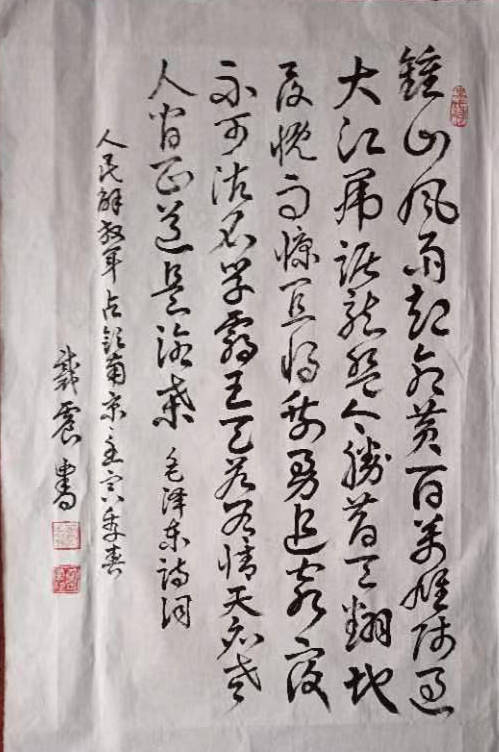 鍾山风雨起苍黄百萬雄师过
大江虎踞龍盘今勝昔天翻地
覆慨而慷宜将剩勇追穷寇
不可沽名学霸王天若有情天亦老
人间正道是沧桑 毛泽东诗词
人民解放军占领南京壬寅季春
戴震书